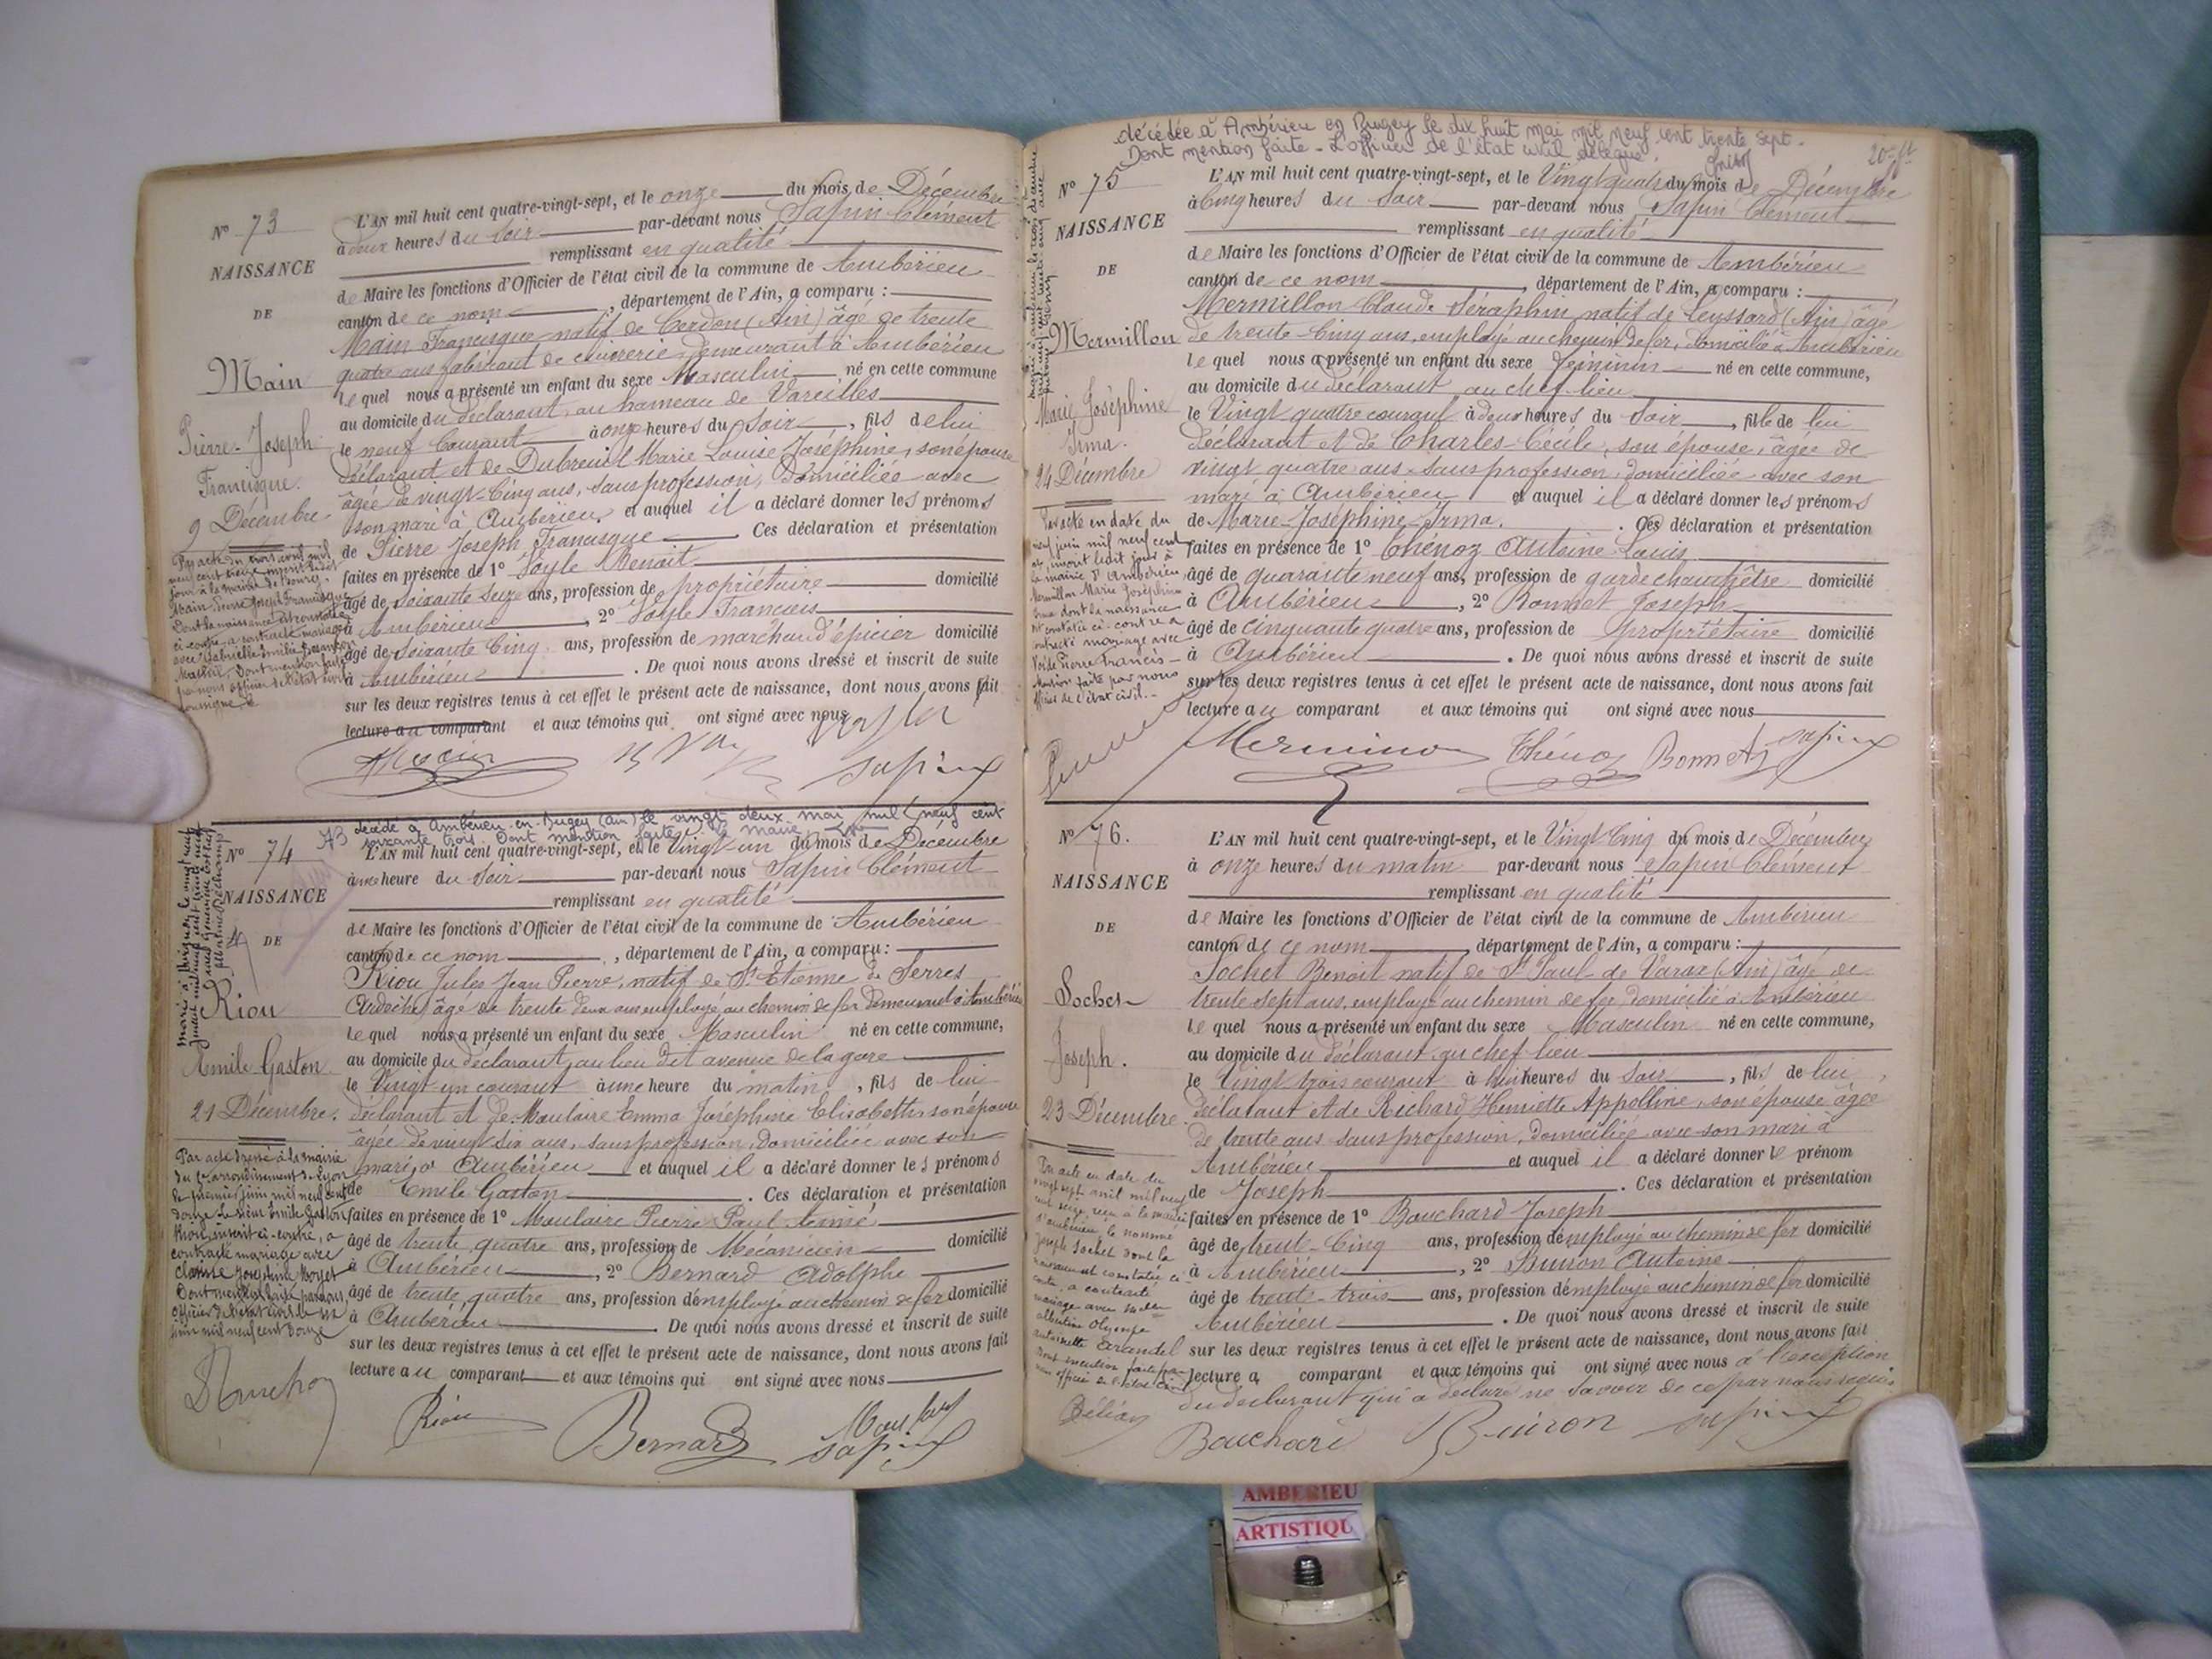 N° 73
NAISSANCE
DE
Main
Pierre-Joseph
Francisque.
9 Décembre
L'AN mil huit cent quatre-vingt-sept, et le onze du mois de Décembre
à deux heures du soir par-devant nous Sapin Clément
remplissant en qualité
de Maire les fonctions d'Officier de l'état civil de la commune de Ambérieu
canton de ce nom, département de l'Ain, a comparu :
Main Francisque natif de Cerdon (Ain) âgé de trente
quatre ans fabricant de demeurant à Ambérieu
lequel nous a présenté un enfant du sexe Masculin né en cette commune
au domicile du déclarant, au hameau de Vareilles
le neuf courant à onze heures du soir, fils de lui
déclarant et de Dubreuil Marie Louise Joséphine, son épouse
âgée de vingt-cinq ans, sans profession, domiciliée avec
son mari à Ambérieu, et auquel il a déclaré donner les prénoms
de Pierre Joseph Francisque. Ces déclaration et présentation
faites en présence de 1° Benoit
âgé de soixante seize ans, profession de propriétaire domicilié
à Ambérieu, 2° François
âgé de soixante cinq ans, profession de marchand épicier domicilié
à Ambérieu. De quoi nous avons dressé et inscrit de suite
sur les deux registres tenus à cet effet le présent acte de naissance, dont nous avons fait
lecture au comparant et aux témoins qui ont signé avec nous
Sapin
décédé à Ambérieu-en-Bugey (Ain) le vingt deux mai mil neuf cent
soixante trois. Dont mention faite. Le maire
N° 74
NAISSANCE
DE
Riou
Emile Gaston
21 Décembre.
Par acte dressé à la mairie
du arrondissement de Lyon
le premier juin mil neuf cent
douze le sieur Emile Gaston
Riou, inscrit ci-contre, a
contracté mariage avec
L'AN mil huit cent quatre-vingt-sept, et le Vingt un du mois de Décembre
à une heure du soir par-devant nous Sapin Clément
remplissant en qualité
de Maire les fonctions d'Officier de l'état civil de la commune de Ambérieu
canton de ce nom, département de l'Ain, a comparu :
Riou Jules Jean Pierre, natif de St Etienne de Serres
Ardèche, âgé de trente deux ans employé au chemin de fer demeurant à Ambérieu
lequel nous a présenté un enfant du sexe Masculin né en cette commune,
au domicile du déclarant, au lieu dit avenue de la gare
le Vingt un courant à une heure du matin, fils de lui
déclarant et de Moulaire Emma Joséphine Elisabeth, son épouse
âgée de vingt six ans, sans profession, domiciliée avec son
mari à Ambérieu et auquel il a déclaré donner les prénoms
de Emile Gaston. Ces déclaration et présentation
faites en présence de 1° Moulaire Pierre Paul Aimé
âgé de trente quatre ans, profession de Mécanicien domicilié
à Ambérieu, 2° Bernard Adolphe
âgé de trente quatre ans, profession d'employé au chemin de fer domicilié
à Ambérieu. De quoi nous avons dressé et inscrit de suite
sur les deux registres tenus à cet effet le présent acte de naissance, dont nous avons fait
lecture au comparant et aux témoins qui ont signé avec nous
Riou Bernard Sapin
décédée à Ambérieu en Bugey le dix huit mai mil neuf cent trente sept.
Dont mention faite - L'officier de l'état civil délégué.
N° 75
NAISSANCE
DE
Mermillon
Marie Joséphine
Irma.
24 Décembre
L'AN mil huit cent quatre-vingt-sept, et le Vingt quatre du mois de Décembre
à cinq heures du soir par-devant nous Sapin Clément
remplissant en qualité
de Maire les fonctions d'Officier de l'état civil de la commune de Ambérieu
canton de ce nom, département de l'Ain, a comparu :
Mermillon Claude Séraphin natif de Leyssard (Ain) âgé
de trente-cinq ans, employé au chemin de fer, domicilié à Ambérieu
lequel nous a présenté un enfant du sexe féminin né en cette commune,
au domicile du déclarant au chef lieu
le Vingt quatre courant à deux heures du soir, fille de lui
déclarant et de Charles Cécile, son épouse, âgée de
vingt quatre ans sans profession, domiciliée avec son
mari à Ambérieu et auquel il a déclaré donner les prénoms
de Marie-Joséphine-Irma. Ces déclaration et présentation
faites en présence de 1° Thénoz Antoine Louis
âgé de quarante neuf ans, profession de garde champêtre domicilié
à Ambérieu, 2° Bonnet Joseph
âgé de cinquante quatre ans, profession de propriétaire domicilié
à Ambérieu. De quoi nous avons dressé et inscrit de suite
sur les deux registres tenus à cet effet le présent acte de naissance, dont nous avons fait
lecture au comparant et aux témoins qui ont signé avec nous
Thénoz Bonnet Sapin
N° 76.
NAISSANCE
DE
Socher
Joseph.
23 Décembre.
L'AN mil huit cent quatre-vingt-sept, et le Vingt cinq du mois de Décembre
à onze heures du matin par-devant nous Sapin Clément
remplissant en qualité
de Maire les fonctions d'Officier de l'état civil de la commune de Ambérieu
canton de ce nom, département de l'Ain, a comparu :
Socher Benoit natif de St Paul de Varax (Ain) âgé de
trente sept ans, employé au chemin de fer domicilié à Ambérieu
lequel nous a présenté un enfant du sexe Masculin né en cette commune,
au domicile du déclarant au chef lieu
le Vingt trois courant à huit heures du soir, fils de lui
déclarant et de Richard Henriette Appolline, son épouse âgée
de trente ans sans profession, domiciliée avec son mari à
Ambérieu et auquel il a déclaré donner le prénom
de Joseph. Ces déclaration et présentation
faites en présence de 1° Bouchard Joseph
âgé de trente-cinq ans, profession d'employé au chemin de fer domicilié
à Ambérieu, 2° Buiron Antoine
âgé de trente-trois ans, profession d'employé au chemin de fer domicilié
Ambérieu. De quoi nous avons dressé et inscrit de suite
sur les deux registres tenus à cet effet le présent acte de naissance, dont nous avons fait
lecture a comparant et aux témoins qui ont signé avec nous à l'exception
du déclarant qui a déclaré ne savoir de ce par nous requis
Bouchard Buiron Sapin
AMBERIEU
ARTISTIQU